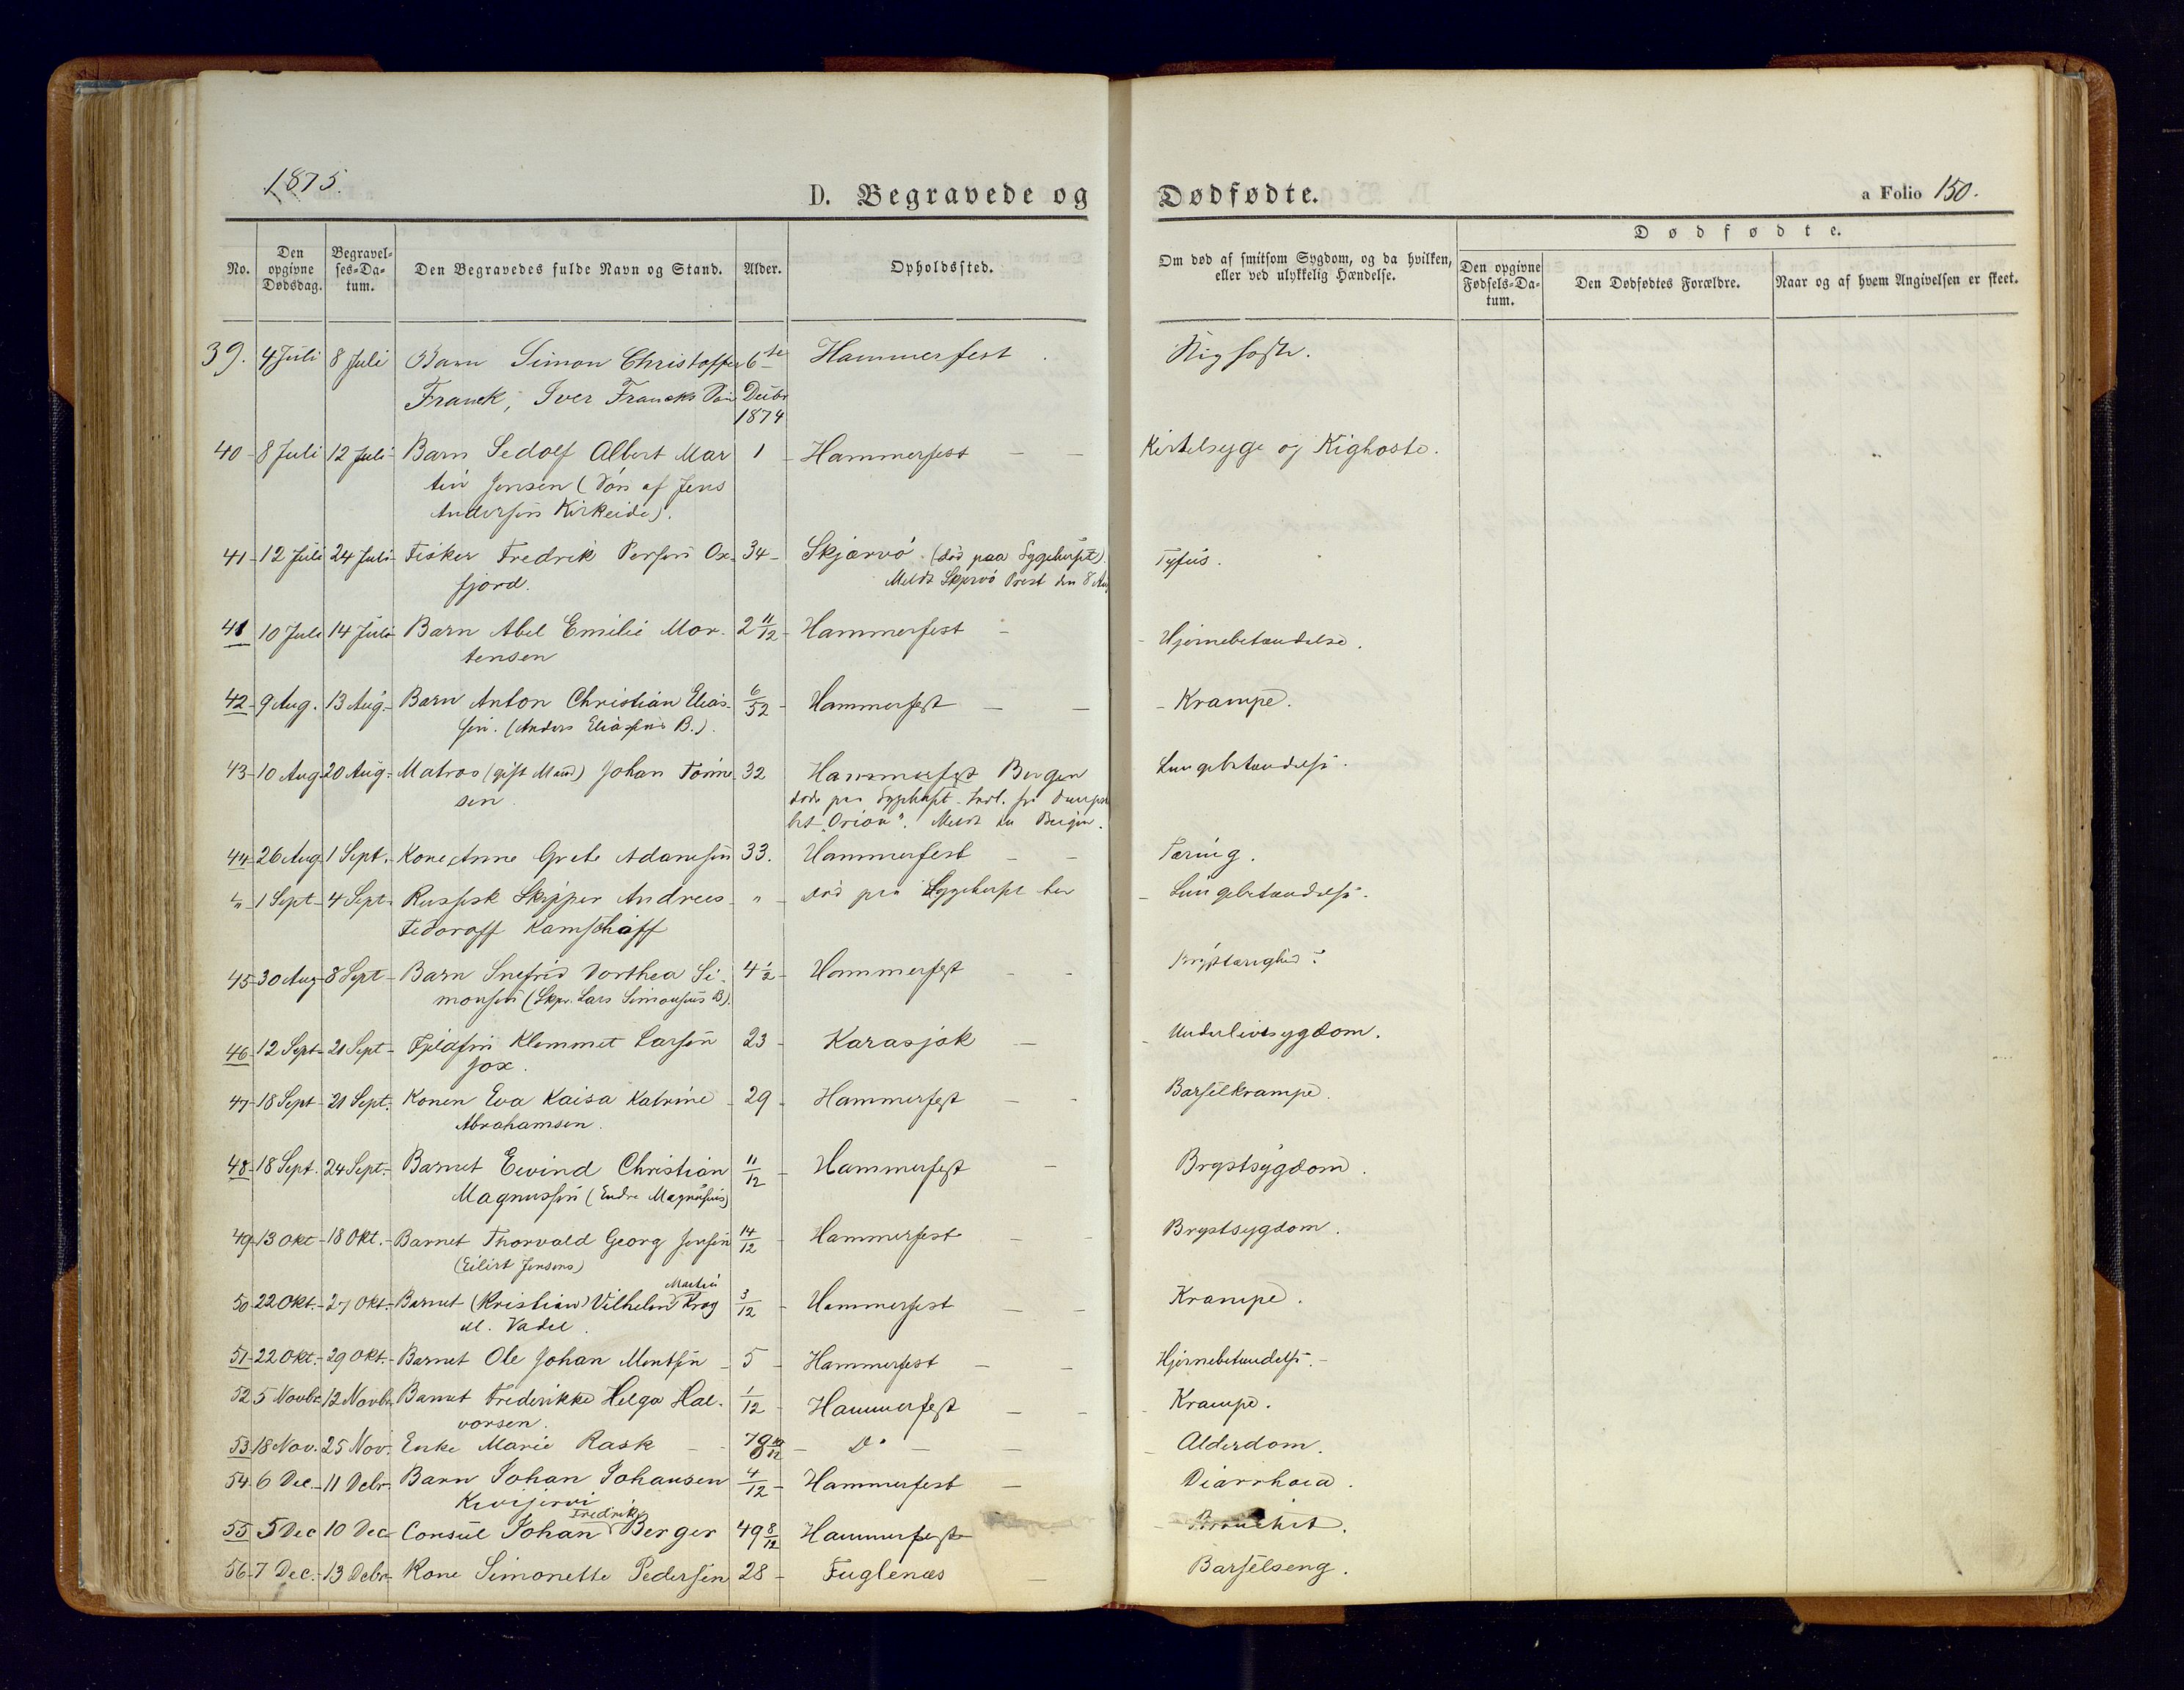 1875.
D. Begravede og Dødfødte.
a Folio 150.
No.
Den opgivne Dødsdag.
Begravelses-Datum.
Den Begravedes fulde Navn og Stand.
Alder.
Opholdssted.
Om død af smitsom Sygdom, og da hvilken, eller ved ulykkelig Hændelse.
Dødfødte.
Den opgivne Fødsels-Datum.
Den Dødfødtes Forældre.
Naar og af hvem Angivelsen er skeet.
39. 4 Juli 8 Juli Barn Simon Christoffer 6te Hammerfest Kighoste.
Franck, Iver Francks Søn Decbr
1874
40 - 8 Juli 12 Juli Barn Sedolf Albert Mar 1 - Hammerfest - - Kirtelsyge og Kighoste.
tin Jensen (Søn af Jens
Andersen Kirkeide).
41 - 12 Juli 24 Juli - Fisker Fredrik Persen Ox- 34 - Skjærvö (död paa Sygehuset) Tyfus.
fjord. Meldt Skjervö Prest den 8 Aug
41 10 Juli 14 Juli - Barn Abel Emilie Mor- 2 11/12 - Hammerfest - - Hjernebetændelse.
tensen
42 - 9 Aug. 13 Aug. - Barn Anton Christian Elias- 6/52 - Hammerfest - - - Krampe.
sen. (Anders Eliassens B.).
43 - 10 Aug 20 Aug. - Matros (gift Mand) Johan Tönne 32 Hammerfest Bergen Lungebetændelse.
sen döde paa Sygehuset - Indl. fra Dampsk
bet „Orion”. Meldt Bergen.
44 26 Aug 1 Sept. Kone Anne Grete Adamsen 33. Hammerfest - - Tæring.
" - 1 Sept - 4 Sept - Russisk Skipper Andrees - " - död paa Sygehuset her - Lungebetændelse.
Fedoroff Kamschaff
45 - 30 Aug - 8 Sept - Barn Snefrid Dorthea Si- 4 1/2 - Hammerfest - -
monsen (Skpr. Lars Simonsens B).
46 - 12 Sept - 21 Sept - Fjeldfin Klemmet Larsen 23 - Karasjok - - Underlivssygdom.
Jox.
47 - 18 Sept - 21 Sept. Konen Eva Kaisa Katrine - 29 - Hammerfest - - Barselkrampe.
Abrahamsen.
48 - 18 Sept. 24 Sept. - Barnet Eivind Christian 11/12 - Hammerfest - Brystsygdom.
Magnussen (Endre Magnussens)
49 - 13 Okt - 18 Okt. - Barnet Thorvald Georg Jensen 14/12 - Hammerfest - - Brystsygdom.
(Eilert Jensens)
Martin
50 - 22 Okt. - 27 Okt. - Barnet (Kristian) Vilhelm Krog 3/12 - Hammerfest - - Krampe.
Vadel.
51 - 22 Okt. - 29 Okt. - Barnet Ole Johan Mentsen - 5 - Hammerfest - - Hjernebetændelse. -
52 5 Novbr 12 Novbr Barnet Frederikke Helga Hal- 1/12 - Hammerfest - - - Krampe.
vorsen.
53 18 Nov. 25 Nov. Enke Marie Rask - - 79 10/12 - Do - - - Alderdom.
54 - 6 Dec. - 11 Debr. Barn Johan Johansen 4/12 - Hammerfest - Diarrhoea.
Kivijervi
Fredrik
55 - 5 Dec 10 Dec Consul Johan Berger 49 8/12 Hammerfest - Bronchit.
56 - 7 Dec. - 13 Debr. - Kone Simonette Pedersen 28 - Fuglenæs - Barselseng.